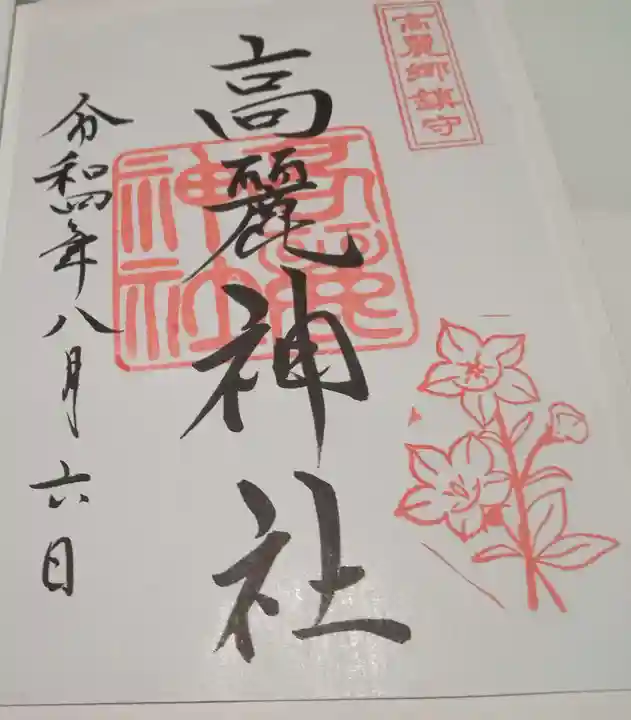 高麗郷鎮守
高麗神社
高麗
神社
令和四年八月六日